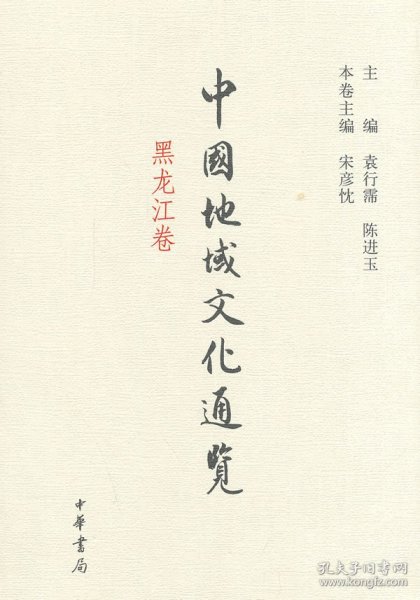 主 编 袁行霈 陈进玉
本卷主编 宋彦忱
中國地域文化通覽
黑龙江卷
中華書局
孔夫子旧书网
www.kongfz.com